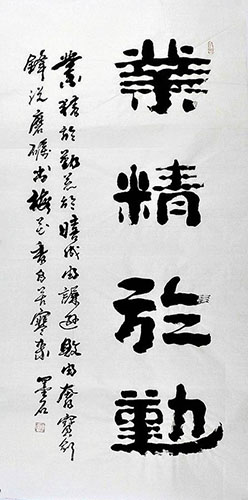 業精於勤
業精於勤荒於嬉成由謙遜敗由奢寶劍
鋒從磨礪出梅花香自苦寒來 墨石